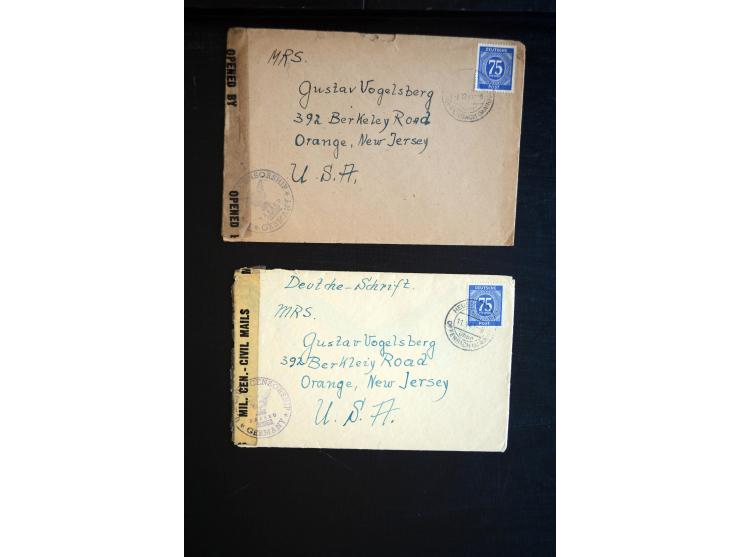 OPENED BY
OPENED
MRS.
Gustav Vogelsberg
392 Berkeley Road
Orange, New Jersey
U.S.A.
DEUTSCHE
75
POST
CENSORSHIP
PASSED
GERMANY
MIL. CEN.- CIVIL MAILS
Deutche-Schrift.
MRS.
Gustav Vogelsberg
392 Berkleiy Road
Orange, New Jersey
U.S.A.
DEUTSCHE
75
POST
CENSORSHIP
PASSED
GERMANY